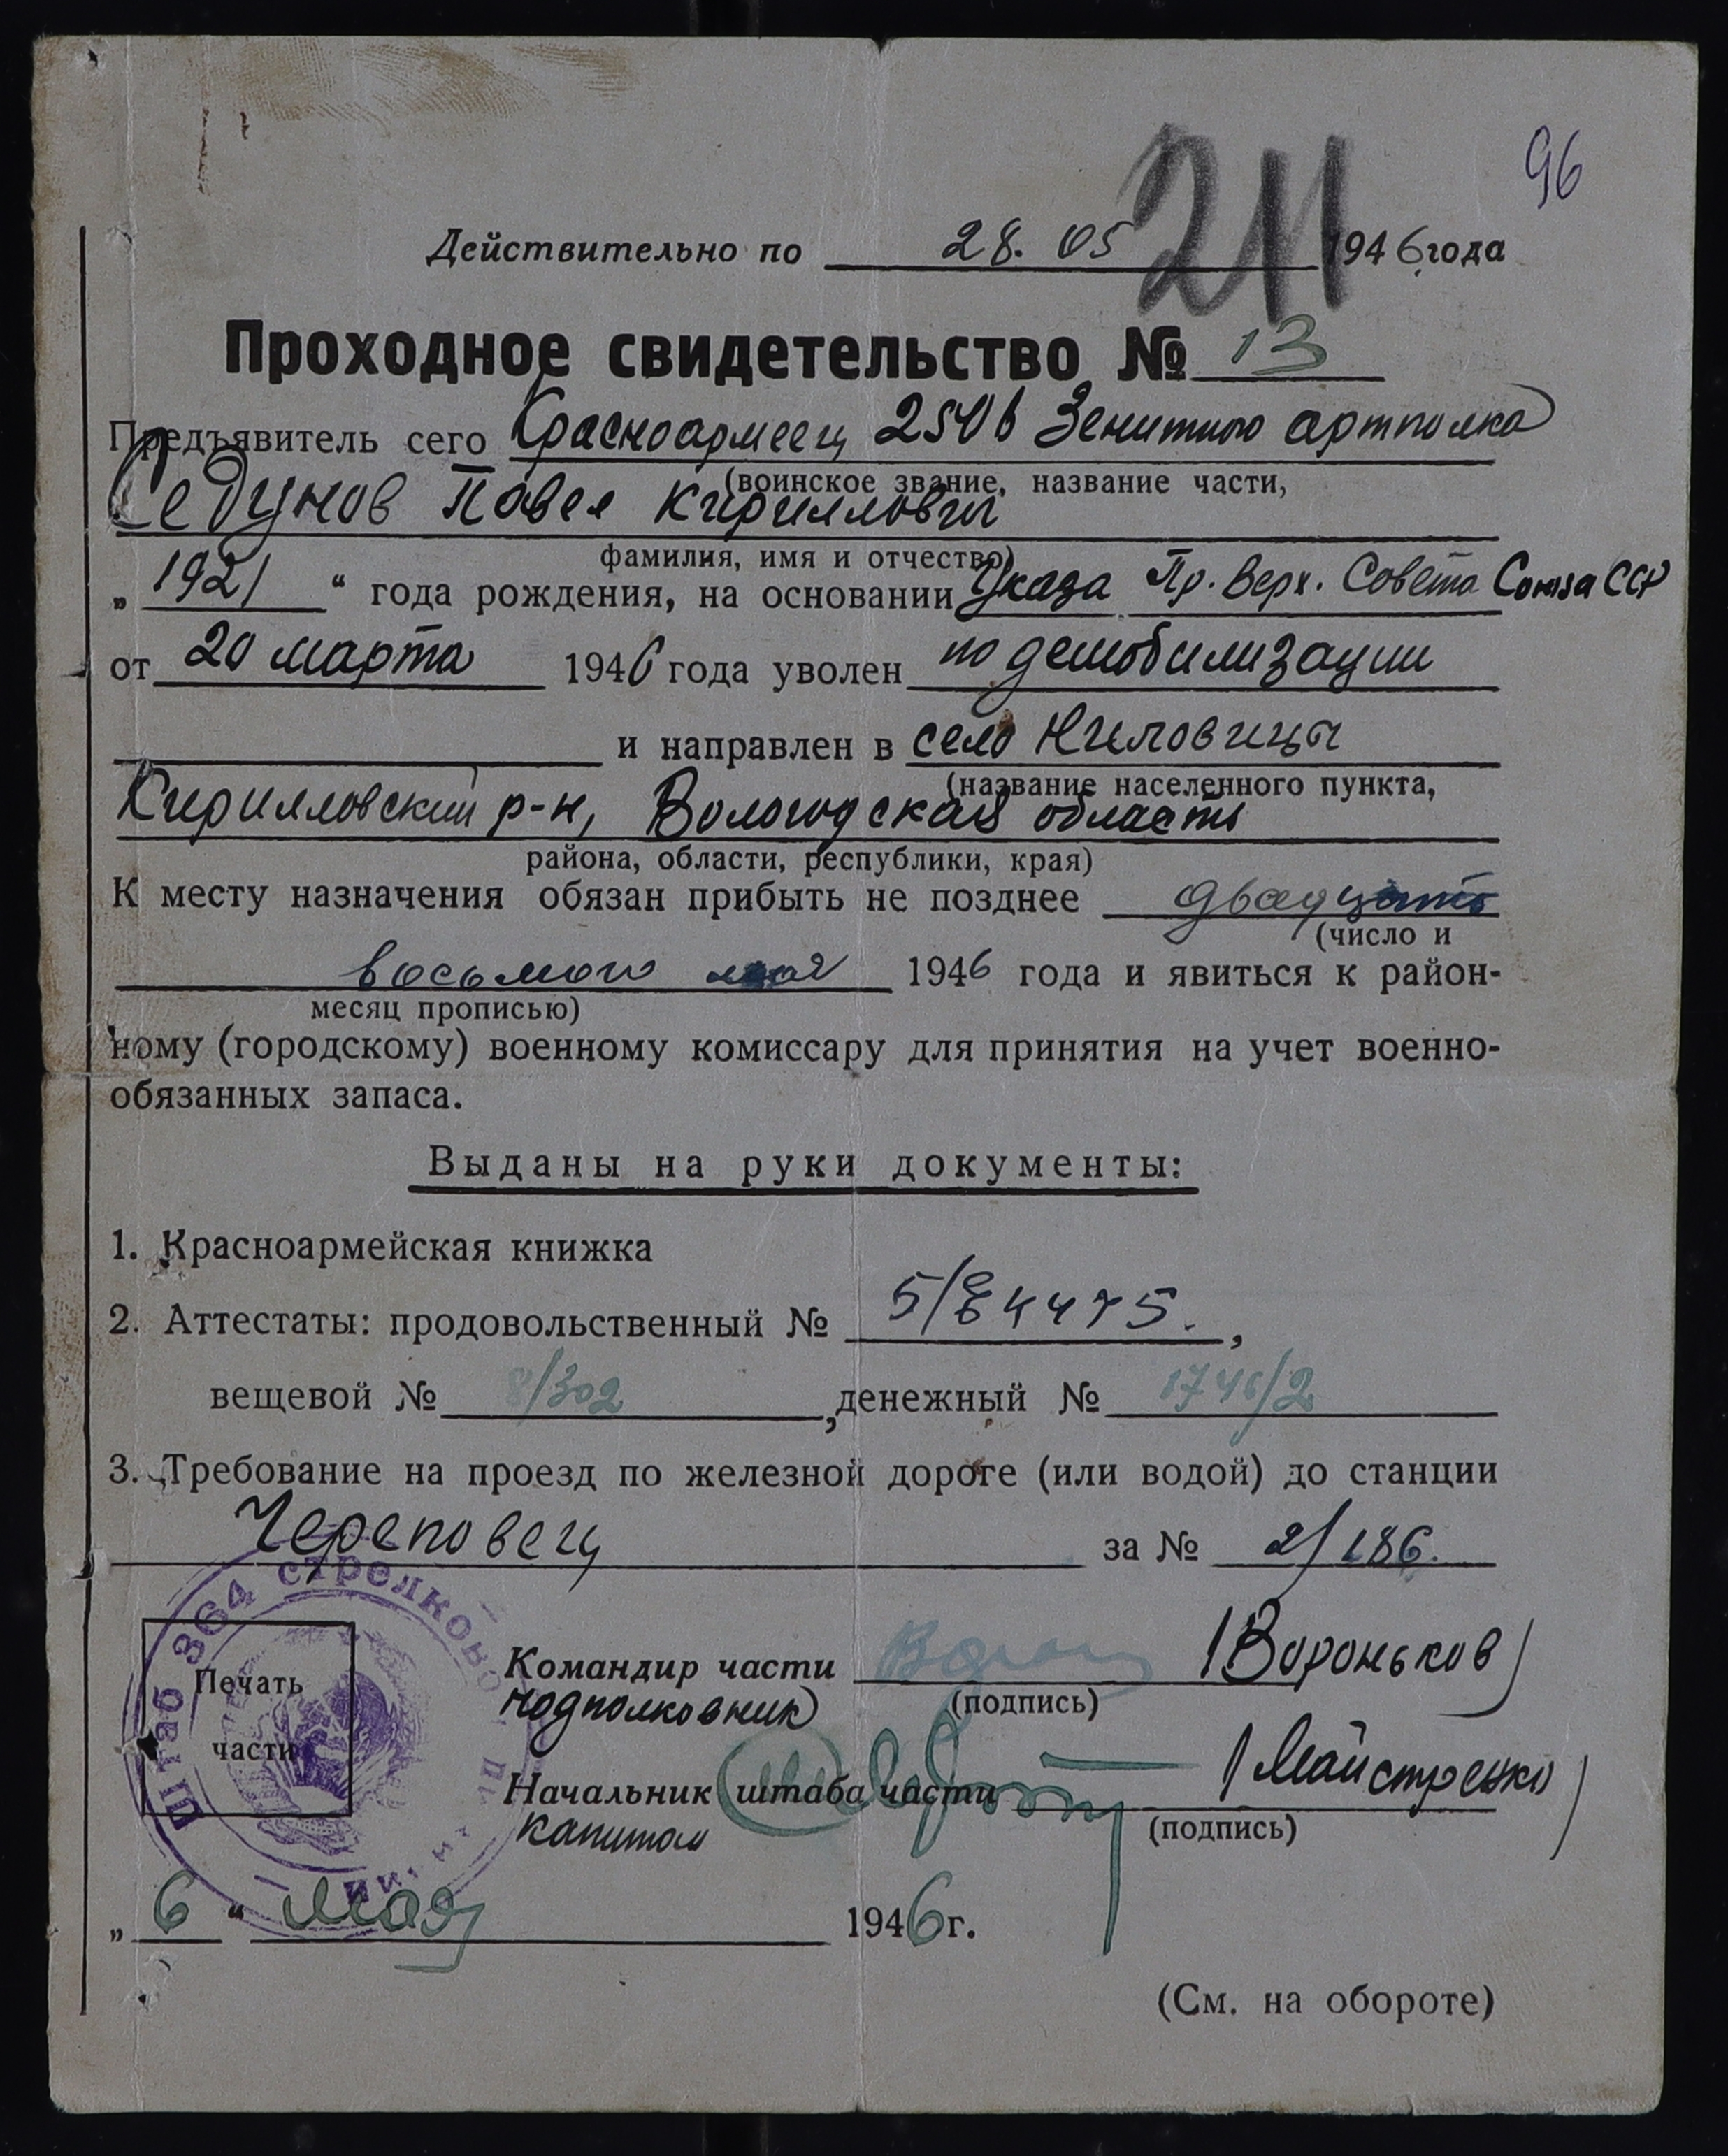 96
211
Действительно по 28. 05 1946 года
Проходное свидетельство № 13
Предъявитель сего Красноармеец 250в Зенитного артполка
(воинское звание, название части,
Седунов Павел Кириллович
фамилия, имя и отчество)
„ 1921 “ года рождения, на основании Указа Пр. Верх. Совета Союза ССР
от 20 марта 1946 года уволен по демобилизации
и направлен в село Ниловицы
(название населенного пункта,
Кирилловский р-н, Вологодская область
района, области, республики, края)
К месту назначения обязан прибыть не позднее двадцать
(число и
восьмого мая 1946 года и явиться к район-
месяц прописью)
ному (городскому) военному комиссару для принятия на учет военно-
обязанных запаса.
Выданы на руки документы:
1. Красноармейская книжка
2. Аттестаты: продовольственный № ,
вещевой № 8/302 , денежный № 1746/2
3. Требование на проезд по железной дороге (или водой) до станции
Череповец за № 2/186.
Штаб 364 стрелково
Печать
части
Командир части (Вороньков)
подполковник (подпись)
Начальник штаба части (Майстренко)
капитан (подпись)
„ 6 “ мая 1946 г.
(См. на обороте)